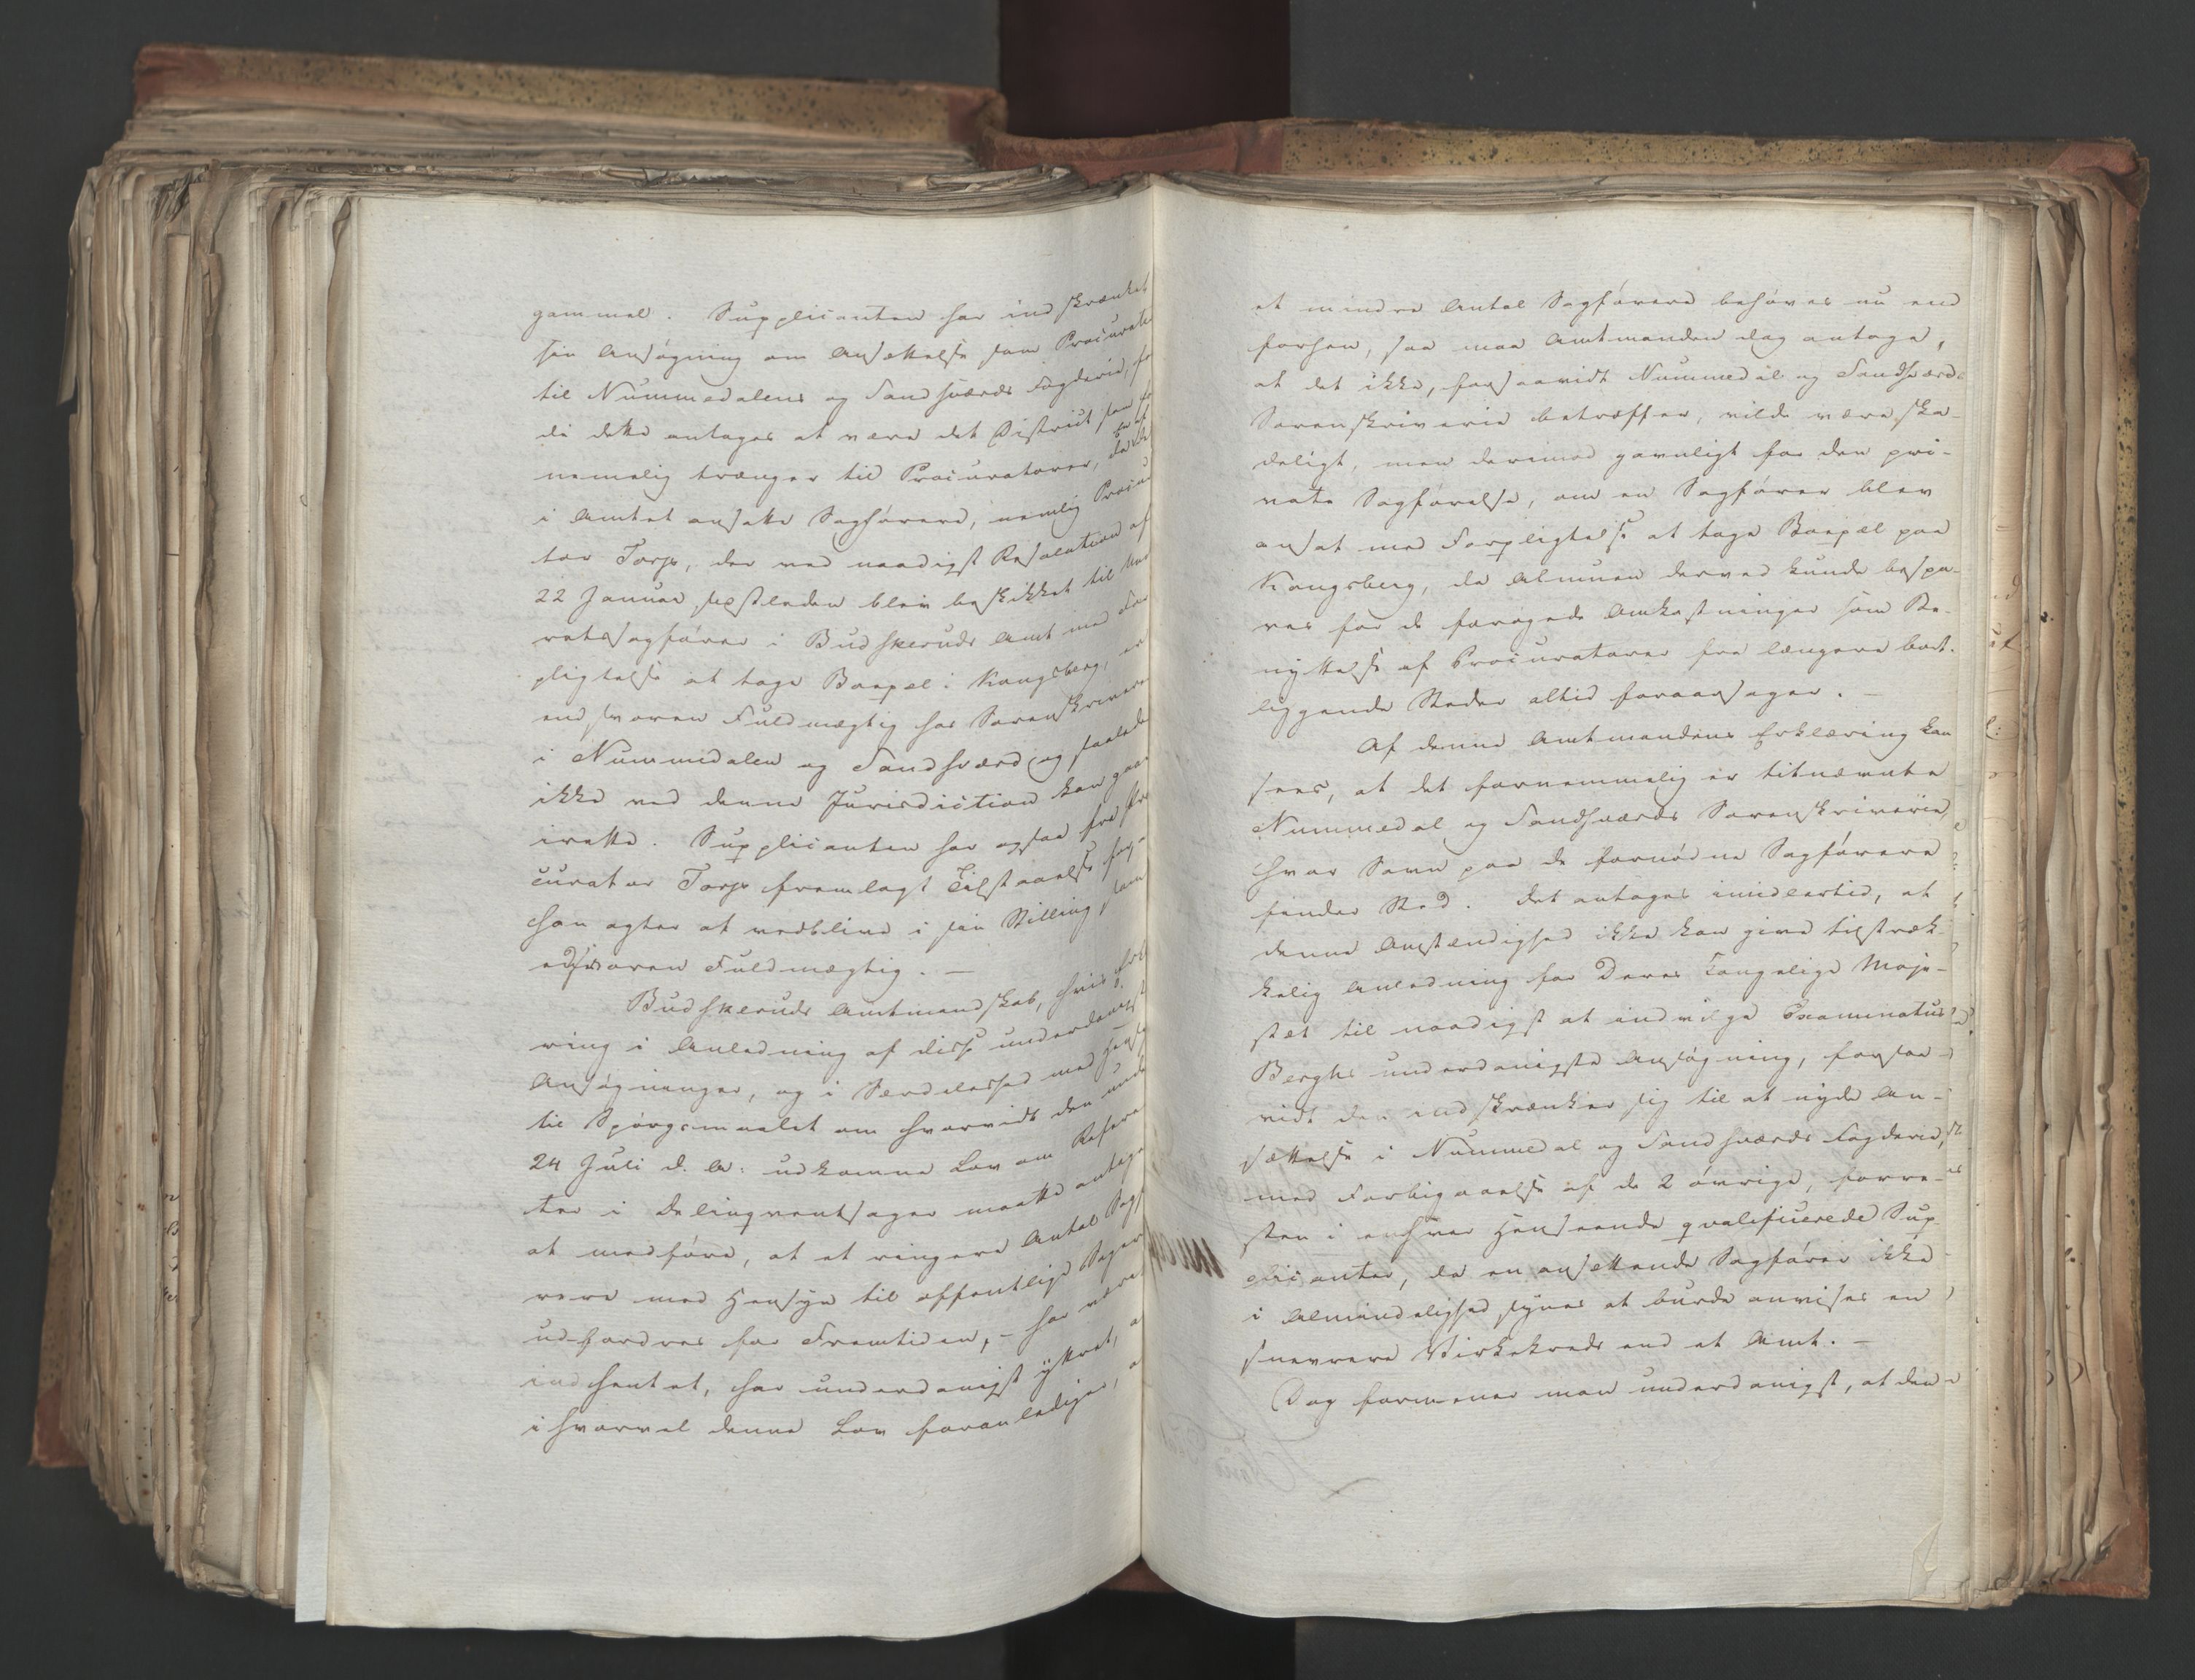 gammel. Supplicanten har indskrænket
sin Ansøgning om Ansættelse som Procurator
til Nummedalens og Sandsværds Fogderie, for
di dette antages at være det District som for
nemelig trænger til Procuratorer, da en af de
i Amtet ansatte Sagførere, nemlig Procura
tor Torp, der ved naadigst Resolution af
22 Januar sidstleden blev beskikket til Un
retssagfører i Budskeruds Amt med For
pligtelse at tage Boepæl i Kongsberg, er
eedsvoren Fuldmægtig hos Sorenskriveren
i Nummedalen og Sandsværd og saaledes
ikke ved denne Jurisdiction kan gaae
irette. Supplicanten har ogsaa fra Pro
curator Torp fremlagt Tilstaaelse for, at
han agter at vedblive i sin Stilling som
edsvoren Fuldmægtig. —
Budskeruds Amtmandskab, hvis Erklæ
ring i Anledning af disse underdanigste
Ansøgninger, og i Særdeleshed med Hensyn
til Spørgsmaalet om hvorvidt den under
24 Juli d. A. udkomne Lov om Referen
ter i Delinqventsager maatte antages
at medføre, at et ringere Antal Sagfø
rere med Hensyn til offentlige Sager
udfordres for Fremtiden, – har været
indhentet, har underdanigst yttret, at
ihvorvel denne Lov foranlediger, at
et mindre Antal Sagførere behøves nu end
forhen, saa maa Amtmanden dog antage,
at det ikke, forsaavidt Nummedal og Sandsværds
Sorenskriverie betræffer, vilde være ska-
deligt, men derimod gavnligt for den pri-
vate Sagførelse, om en Sagfører blev
ansat med Forpligtelse at tage Boepæl paa
Kongsberg, da Almuen derved kunde bespa-
res for de forøgede Omkostninger som Be-
nyttelse af Procuratorer fra længere bort-
liggende Steder altid foraarsager. —
Af denne Amtmandens Erklæring kan
sees, at det fornemmelig er bemeldte
Nummedal og Sandsværds Sorenskriverie,
hvor Savn paa de fornødne Sagførere
finder Sted. Det antages imidlertid, at
denne Omstændighed ikke kan give tilstræk-
kelig Anledning for Deres Kongelige Maje-
stæt til naadigst at indvilge Examinatus
Berghs underdanigste Ansøgning, forsaa-
vidt den indskrænker sig til at nyde An-
sættelse i Nummedal og Sandsværds Fogderie,
med Forbigaaelse af de 2 øvrige, forre-
sten i enhver Henseende qvalificerede Sup-
plicanter, da en ansættende Sagfører ikke
i Almindelighed synes at burde anvises en
snevrere Virkekreds end et Amt. —
Dog formener man underdanigst, at den